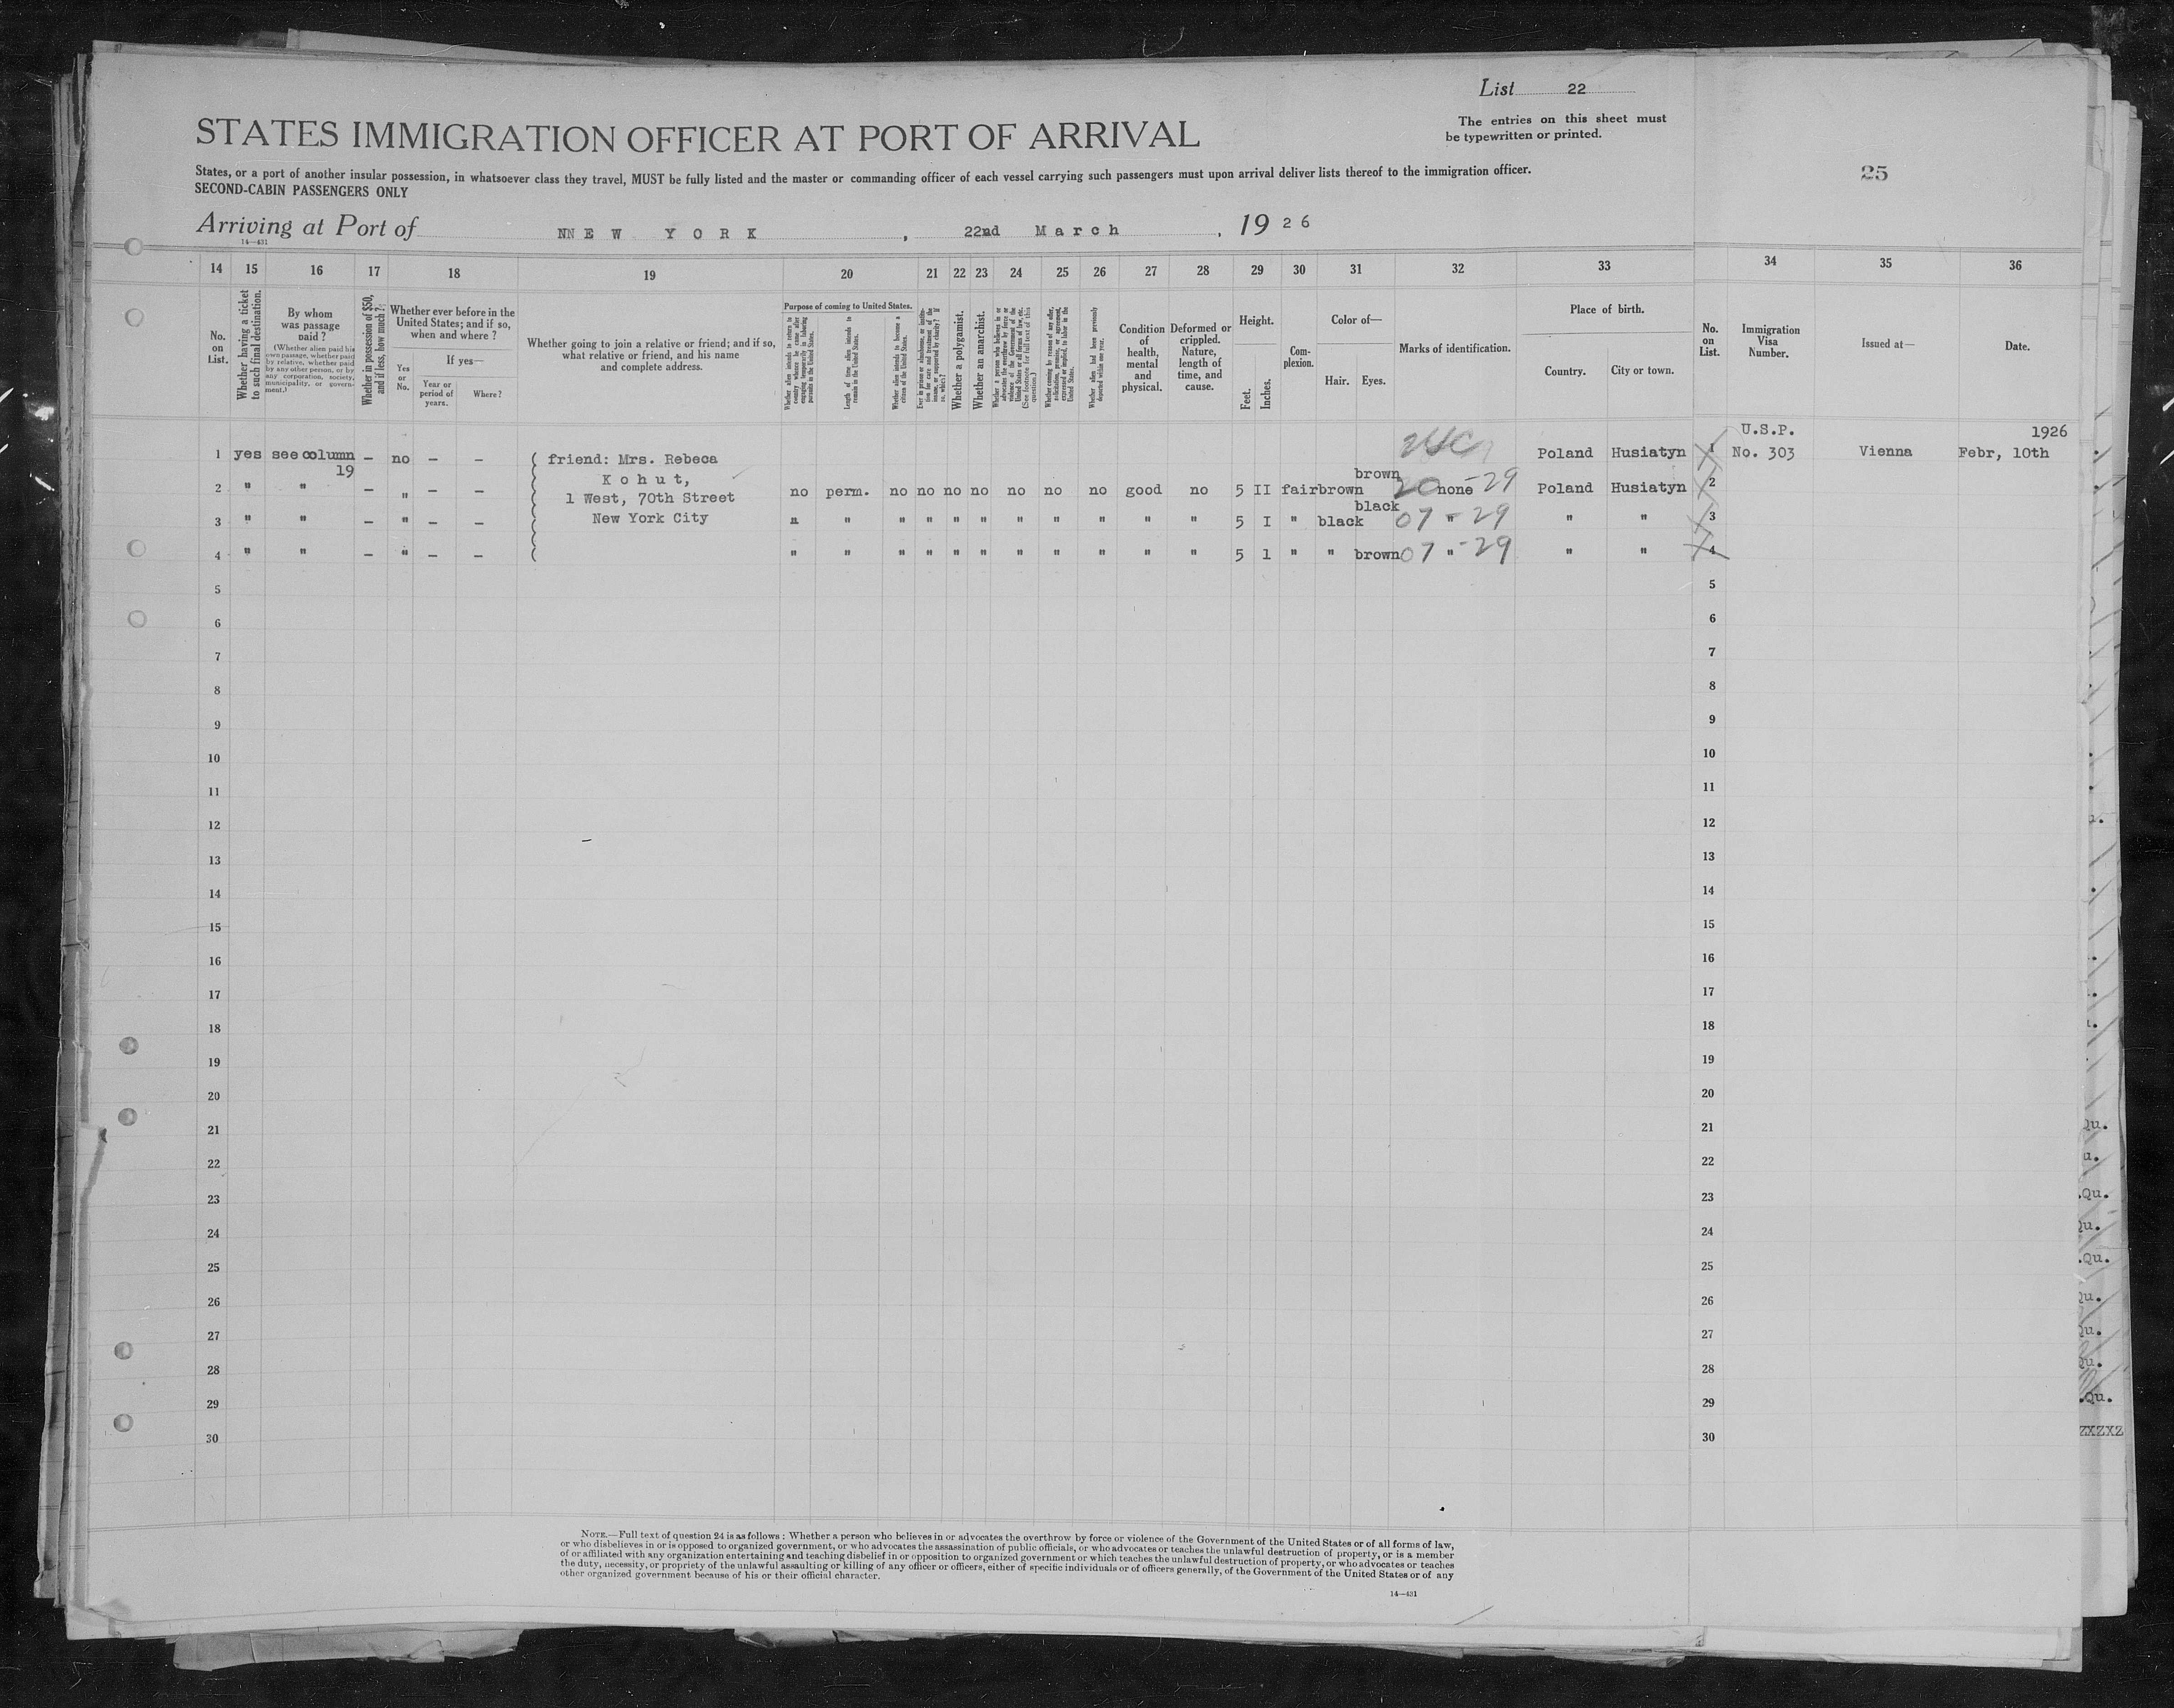 List 22
The entries on this sheet must
be typewritten or printed.
STATES IMMIGRATION OFFICER AT PORT OF ARRIVAL
25
States, or a port of another insular possession, in whatsoever class they travel, MUST be fully listed and the master or commanding officer of each vessel carrying such passengers must upon arrival deliver lists thereof to the immigration officer.
SECOND-CABIN PASSENGERS ONLY
Arriving at Port of NN E W Y O R K , 22nd M a r c h , 19 2 6
14—431
14 15 16 17 18 19 20 21 22 23 24 25 26 27 28 29 30 31 32 33 34 35 36
No. on List.
Whether having a ticket to such final destination.
By whom was passage paid?
(Whether alien paid his own passage, whether paid by relative, whether paid by any other person, or by any corporation, society, municipality, or government.)
Whether in possession of $50, and if less, how much?
Whether ever before in the United States; and if so, when and where?
Yes or No.
If yes—
Year or period of years.
Where?
Whether going to join a relative or friend; and if so, what relative or friend, and his name and complete address.
Purpose of coming to United States.
Whether alien intends to return to country whence he came after engaging temporarily in laboring pursuits in the United States.
Length of time alien intends to remain in the United States.
Whether alien intends to become a citizen of the United States.
Ever in prison or almshouse, or institution for care and treatment of the insane, or supported by charity? If so, which?
Whether a polygamist.
Whether an anarchist.
Whether a person who believes in or advocates the overthrow by force or violence of the Government of the United States or all forms of law, etc. (See footnote for full text of this question.)
Whether coming by reason of any offer, solicitation, promise, or agreement, expressed or implied, to labor in the United States.
Whether alien had been previously deported within one year.
Condition of health, mental and physical.
Deformed or crippled. Nature, length of time, and cause.
Height.
Feet. Inches.
Complexion.
Color of—
Hair. Eyes.
Marks of identification.
Place of birth.
Country. City or town.
No. on List.
Immigration Visa Number.
Issued at—
Date.
U.S.P. 1926
1 yes see column 19 — no — — ( friend: Mrs. Rebeca Poland Husiatyn 1 No. 303 Vienna Febr, 10th
K o h u t, brown
2 " " — " — — 1 West, 70th Street no perm. no no no no no no no good no 5 II fair brown 20 none -29 Poland Husiatyn 2
black
3 " " — " — — New York City " " " " " " " " " " " 5 I " black 07 " - 29 " " 3
4 " " — " — — ( " " " " " " " " " " " 5 1 " " brown 07 " -29 " " 4
5 5
6 6
7 7
8 8
9 9
10 10
11 11
12 12
13 13
14 14
15 15
16 16
17 17
18 18
19 19
20 20
21 21
22 22
23 23
24 24
25 25
26 26
27 27
28 28
29 29
30 30
NOTE.—Full text of question 24 is as follows: Whether a person who believes in or advocates the overthrow by force or violence of the Government of the United States or of all forms of law,
or who disbelieves in or is opposed to organized government, or who advocates the assassination of public officials, or who advocates or teaches the unlawful destruction of property, or is a member
of or affiliated with any organization entertaining and teaching disbelief in or opposition to organized government or which teaches the unlawful destruction of property, or who advocates or teaches
the duty, necessity, or propriety of the unlawful assaulting or killing of any officer or officers, either of specific individuals or of officers generally, of the Government of the United States or of any
other organized government because of his or their official character.
14—431